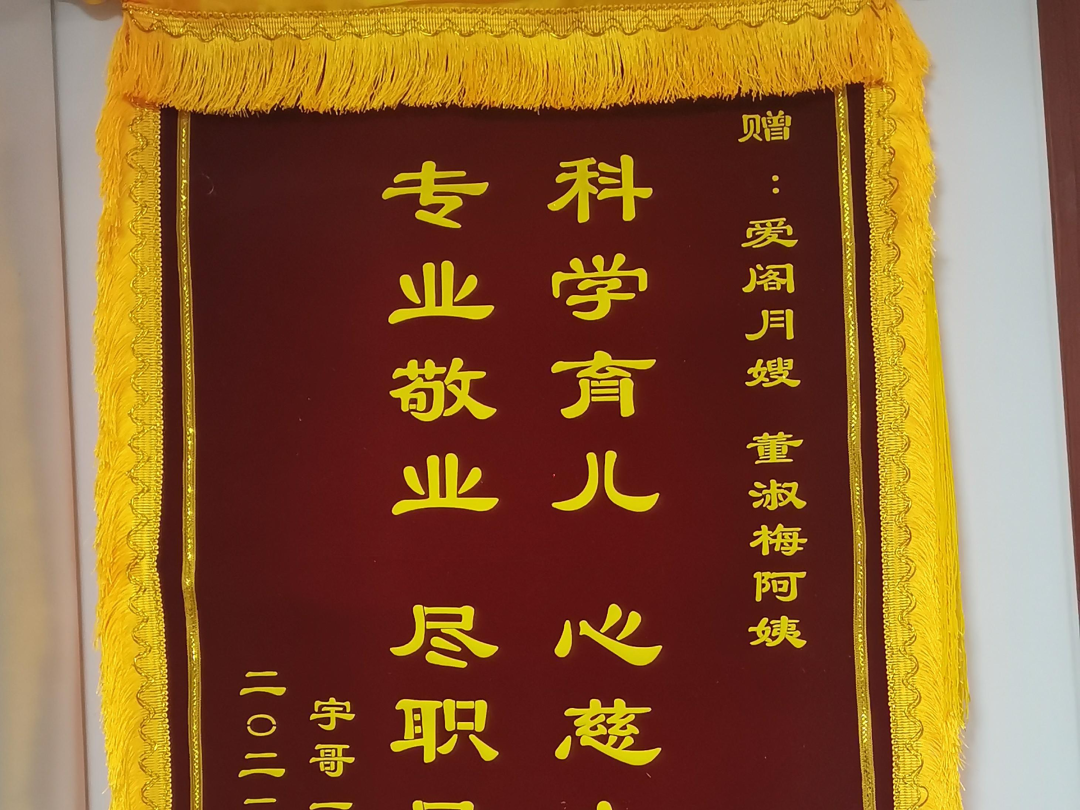 赠：爱阁月嫂 董淑梅阿姨
科学育儿 心慈
专业敬业 尽职
宇哥
二〇二